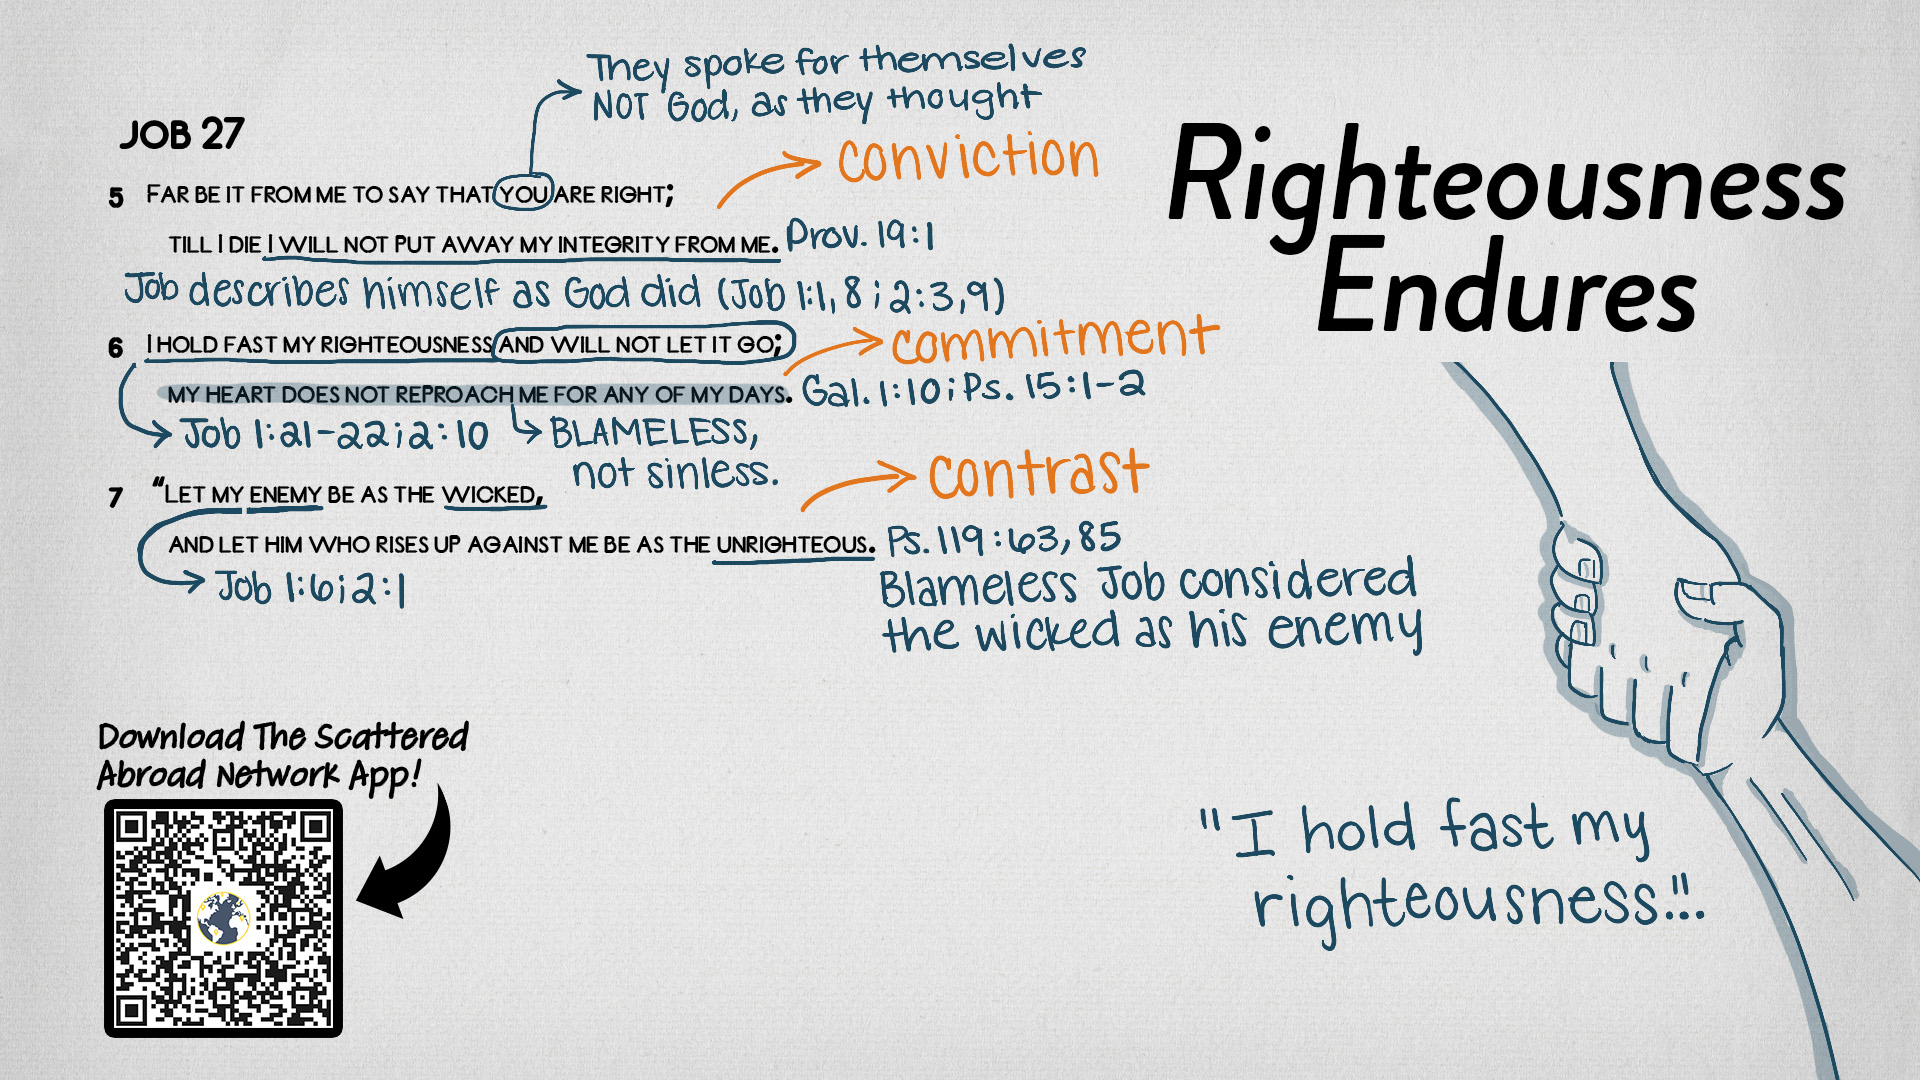 They spoke for themselves
NOT God, as they thought
JOB 27
conviction
Righteousness
Endures
5 FAR BE IT FROM ME TO SAY THAT YOU ARE RIGHT;
TILL I DIE I WILL NOT PUT AWAY MY INTEGRITY FROM ME. Prov. 19:1
Job describes himself as God did (Job 1:1, 8; 2:3,9)
6 I HOLD FAST MY RIGHTEOUSNESS AND WILL NOT LET IT GO;
commitment
MY HEART DOES NOT REPROACH ME FOR ANY OF MY DAYS. Gal. 1:10; Ps. 15:1-2
Job 1:21-22; 2:10
BLAMELESS,
not sinless.
contrast
7 "LET MY ENEMY BE AS THE WICKED,
AND LET HIM WHO RISES UP AGAINST ME BE AS THE UNRIGHTEOUS. Ps. 119:63, 85
Job 1:6; 2:1
Blameless Job considered
the wicked as his enemy
Download The Scattered
Abroad Network App!
"I hold fast my
righteousness..."